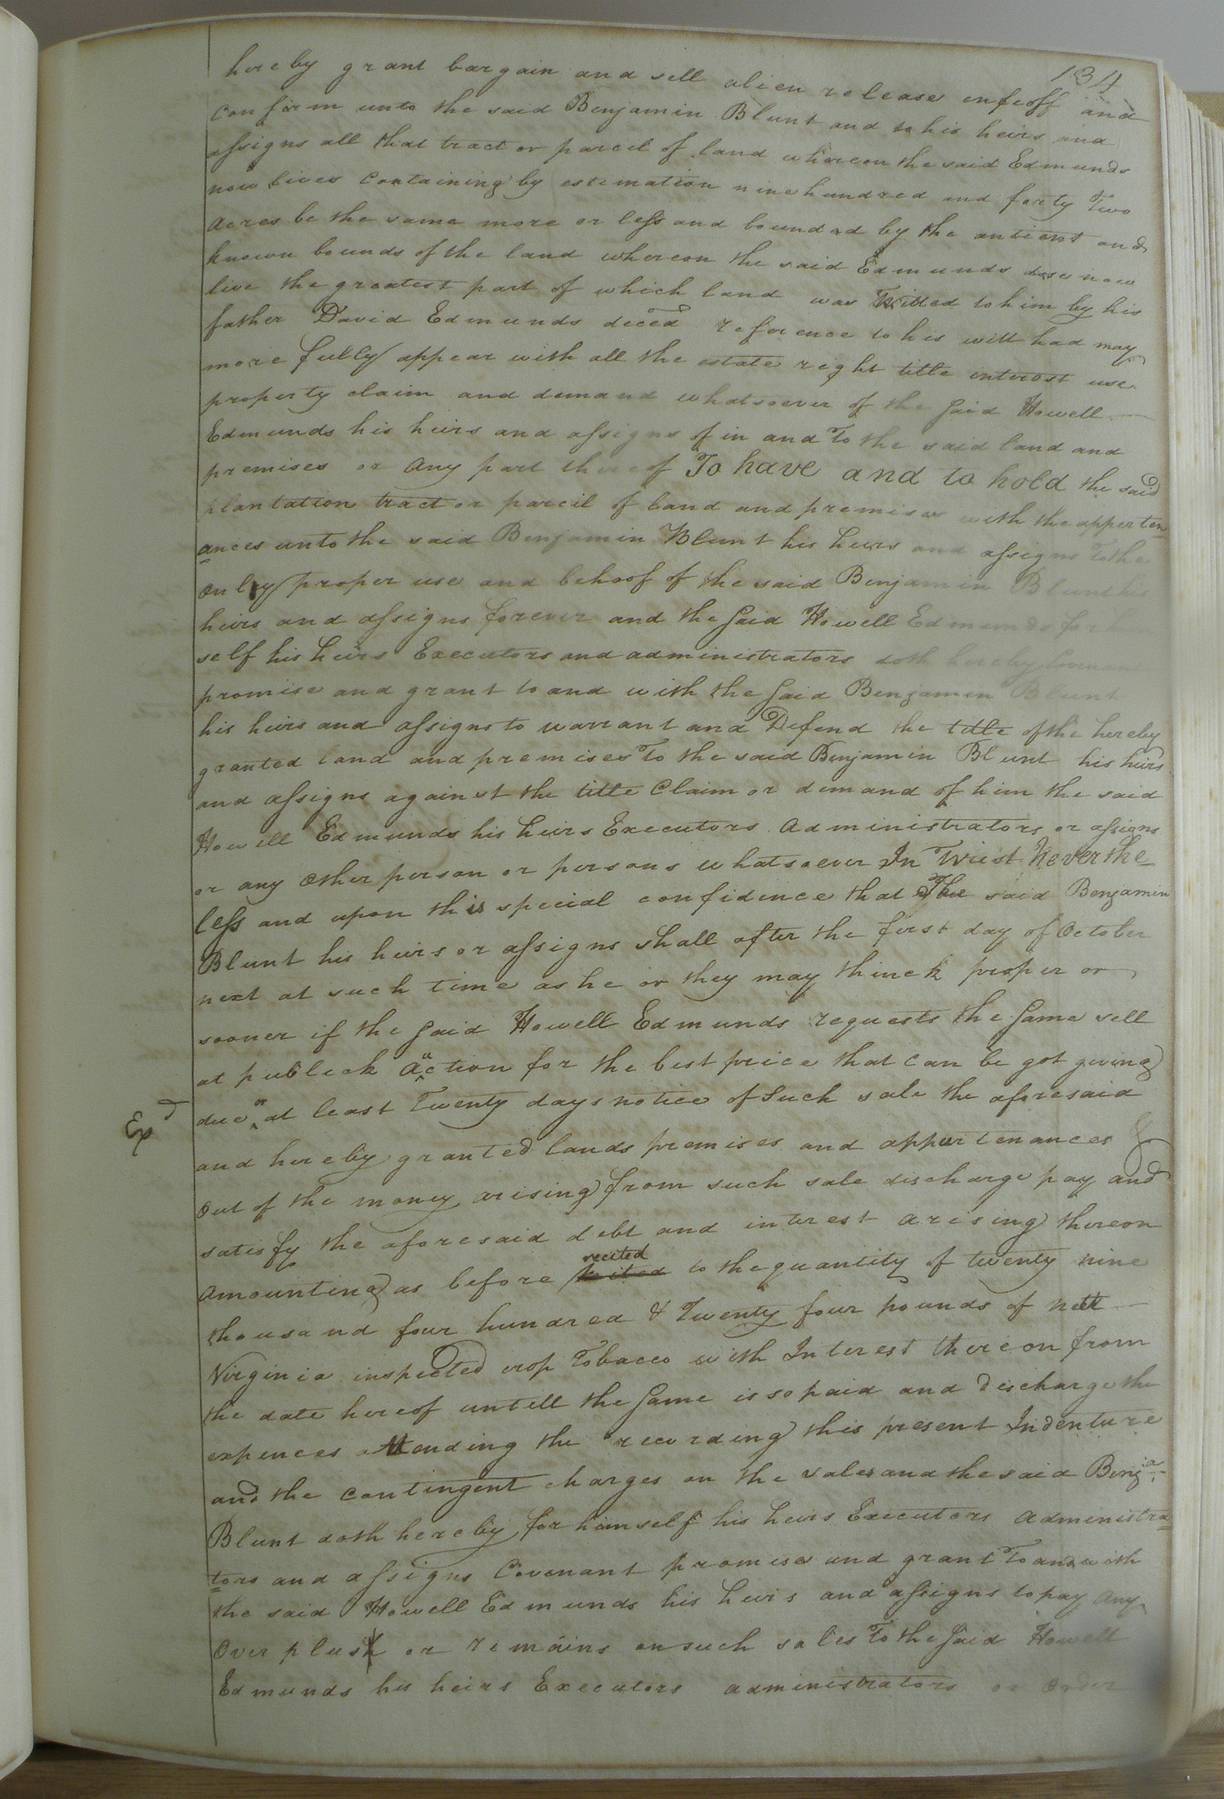 134
hereby grant bargain and sell alien release enfeoff and
Confirm unto the said Benjamin Blunt and to his heirs and
assigns all that tract or parcel of land whereon the said Edmunds
now lives Containing by estemation nine hundred and forty Two
Acres be the same more or less and bounded by the antient and
known bounds of the land whereon the said Edmunds dose now
live the greatest part of which land was Willed to him by his
father David Edmunds deced reference to his will had may
more fully appear with all the estate right title interest use
property claim and demand whatsoever of the said Howell
Edmunds his heirs and assigns of in and To the said land and
premises or any part thereof To have and to hold the said
plantation tract or parcil of land and premises with the apperten
ances unto the said Benjamin Blunt his heirs and assigns To the
only proper use and behoof of the said Benjamin Blunt his
heirs and assigns forever and the said Howell Edmunds for
self his heirs Executors and administrators doth hereby Covenant
promise and grant to and with the said Benjamin Blunt
his heirs and assigns to warrant and Defend the title of the hereby
granted land and premises To the said Benjamin Blunt his heirs
and assigns against the title Claim or demand of him the said
Howell Edmunds his heirs Executors Administrators or assigns
or any other person or persons whatsoever In Trust Neverthe
less and upon this special confidence that The said Benjamin
Blunt his heirs or assigns shall after the first day of October
next at such time as he or they may thinck proper or
sooner if the said Howell Edmunds requests the same sell
at publick auction for the best price that can be got giving
Exd
due or at least Twenty days notice of such sale the aforesaid
and hereby granted lands premises and appurtenances &
out of the money arising from such sale discharge pay and
satisfy the aforesaid debt and interest aresing thereon
amounting as before recited to the quantity of twenty nine
thousand four hundred & Twenty four pounds of nett
Virginia inspected crop Tobacco with Interest thereon from
the date hereof untell the same is so paid and discharge the
expences attending the recording this present Indenture
and the contingent charges on the sales and the said Benja
Blunt doth hereby for himself his heirs Executors Administra
tors and assigns Covenant promise and grant To and with
the said Howell Edmunds his heirs and assigns to pay any
over plus or remains on such sales To the said Howell
Edmunds his heirs Executors administrators or order